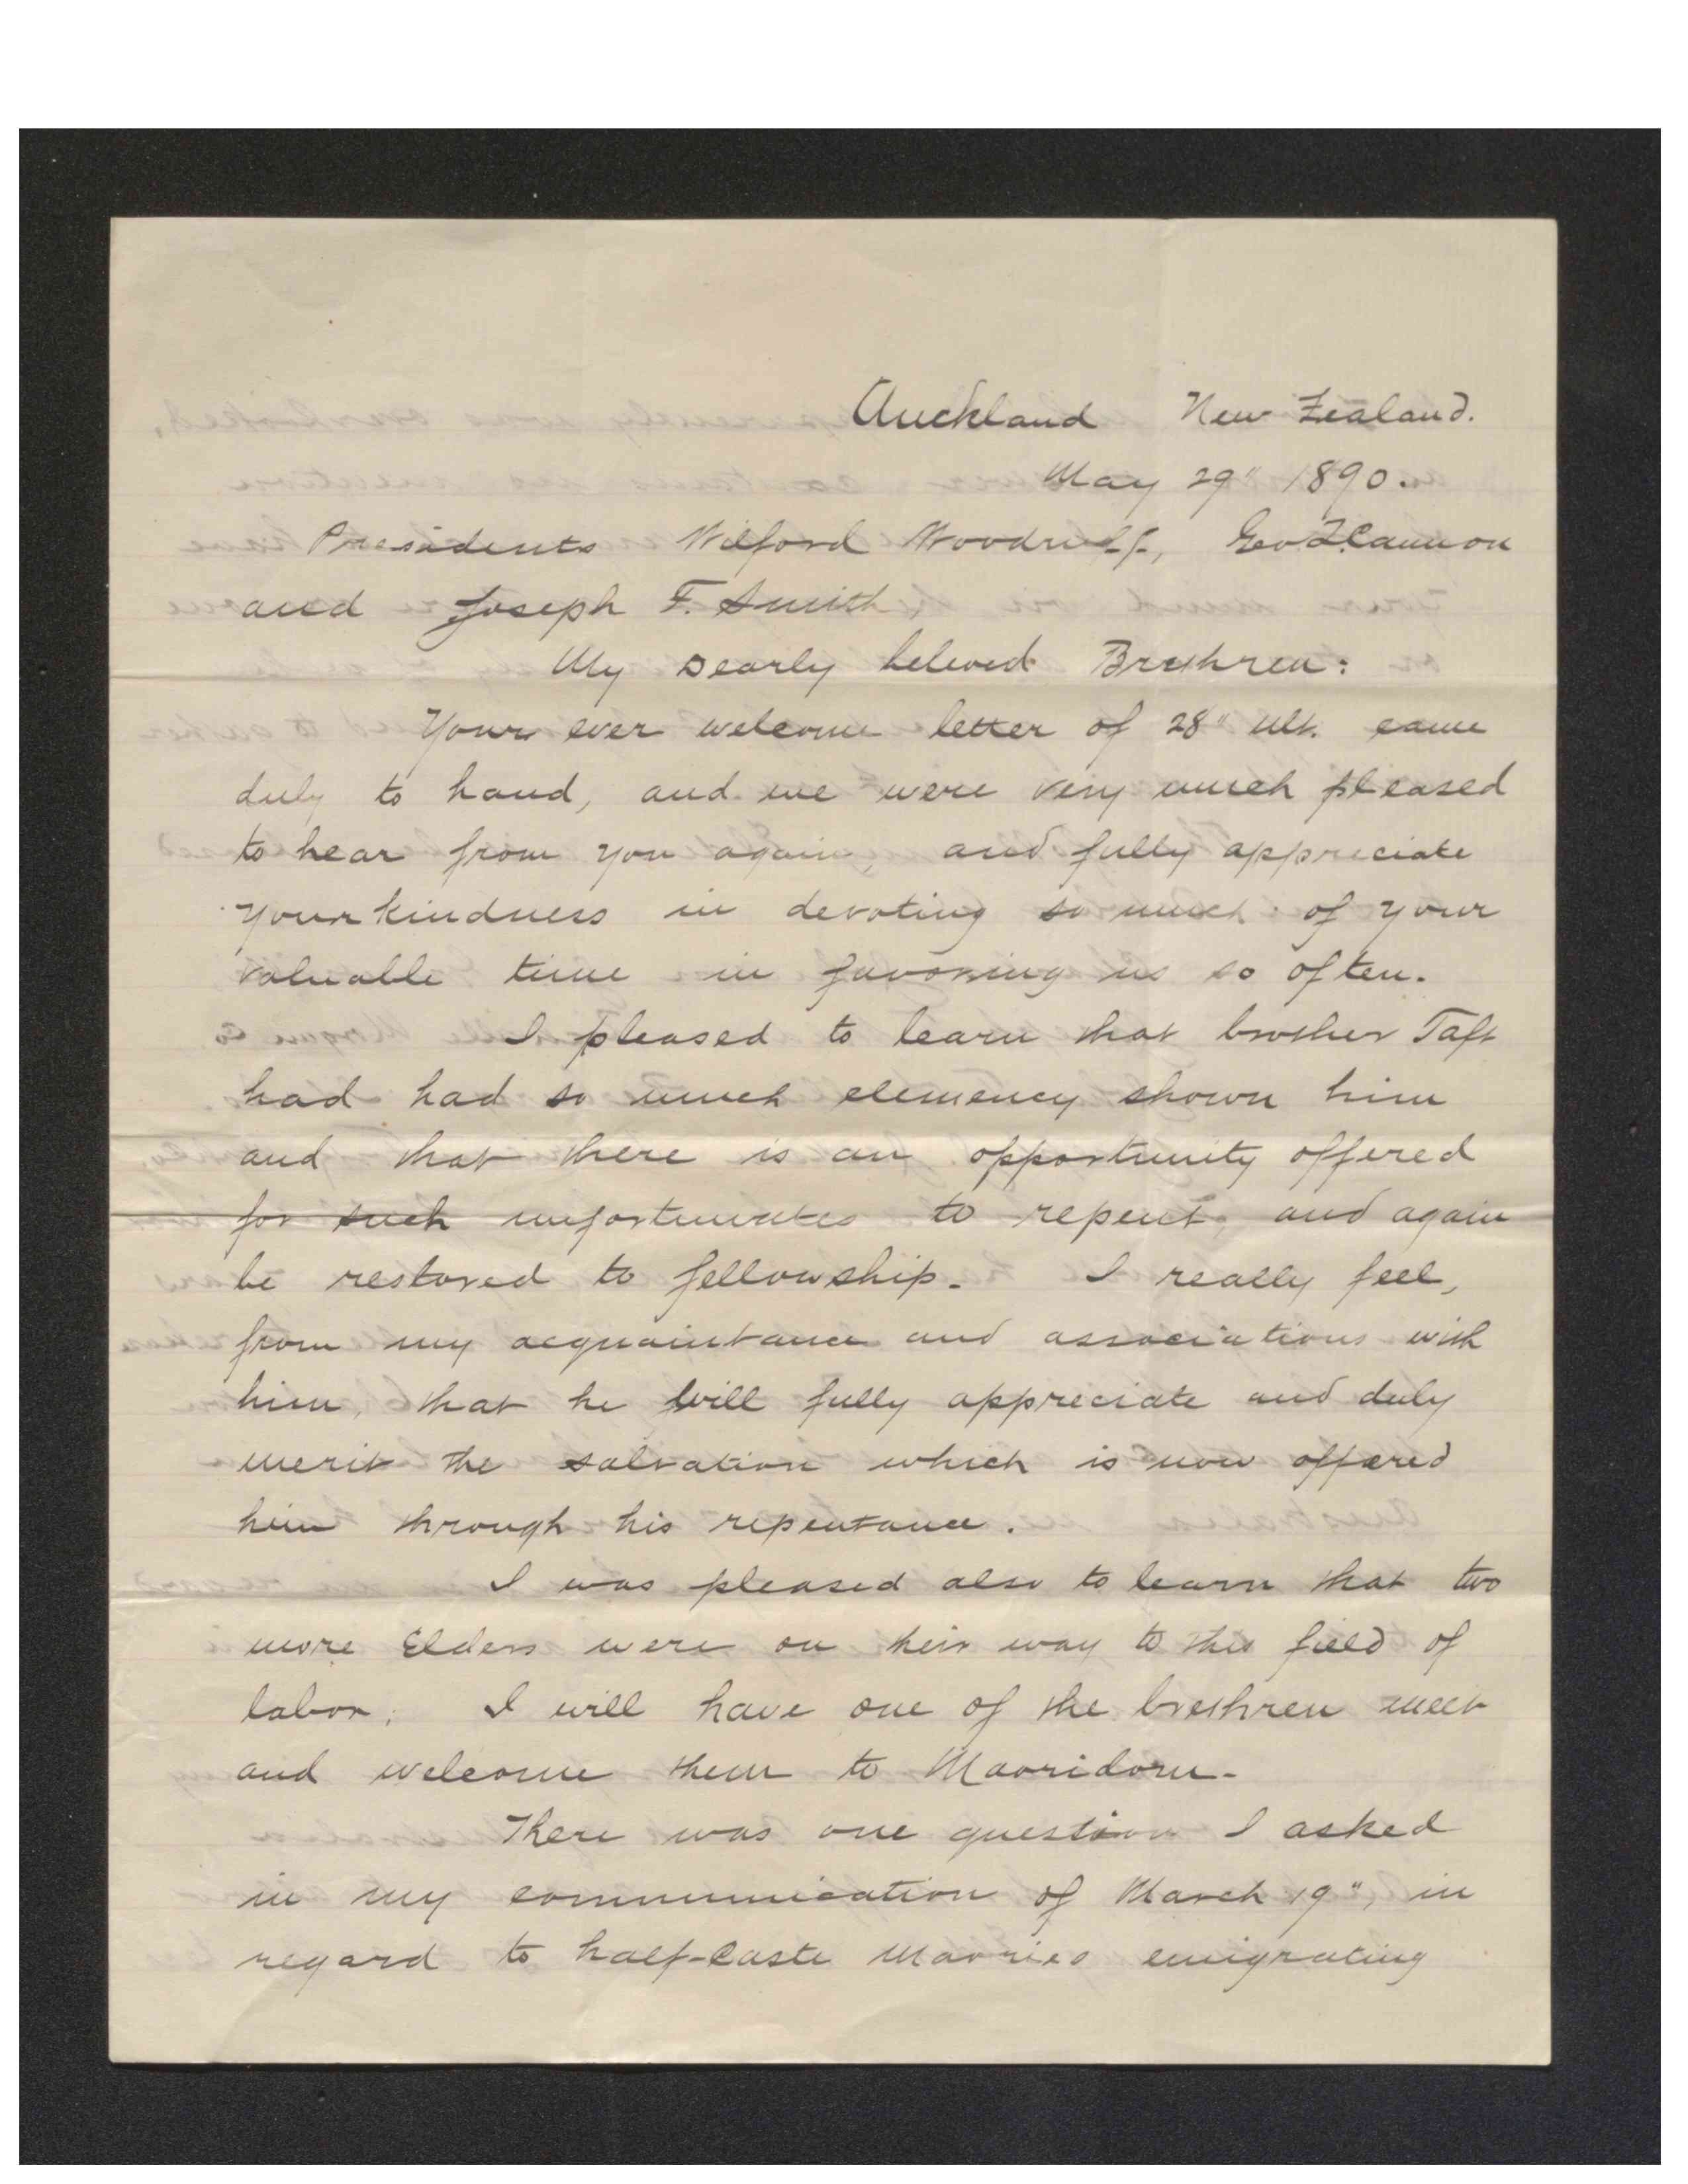 Auckland New Zealand.
May 29" 1890.
Presidents Wilford Woodruff, Geo Q. Cannon
and Joseph F. Smith,
My Dearly beloved Brethren:
Your ever welcome letter of 28" ult. came
duly to hand, and we were very much pleased
to hear from you again, and fully appreciate
your kindness in devoting so much of your
valuable time in favoring us so often.
I pleased to learn that brother Taft
had had so much clemency shown him
and that there is an opportunity offered
for such unfortunates to repent, and again
be restored to fellowship. I really feel,
from my acquaintance and associations with
him, that he will fully appreciate and duly
merit the salvation which is now offered
him through his repentance.
I was pleased also to learn that two
more Elders were on their way to this field of
labor; I will have one of the brethren meet
and welcome them to Maoridom.
There was one question I asked
in my communication of March 19", in
regard to half-caste Maories emigrating